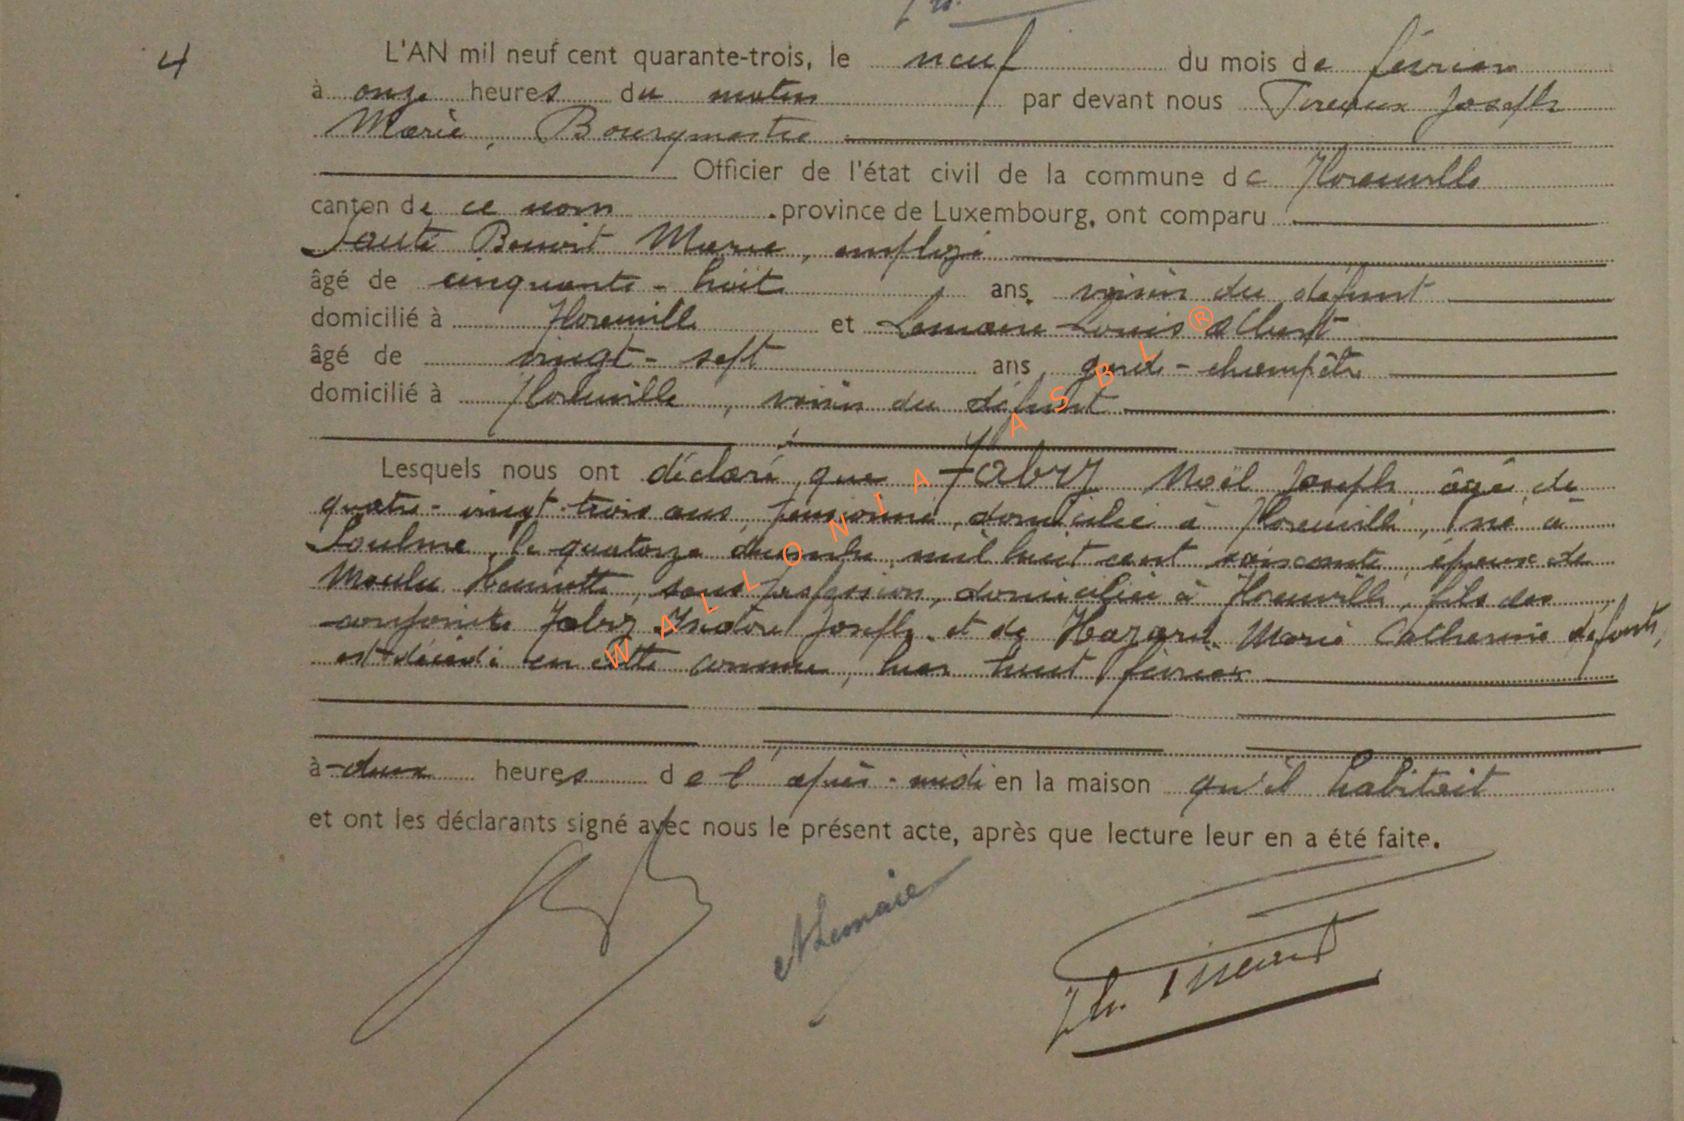 4
L'AN mil neuf cent quarante-trois, le neuf du mois de février
à onze heures du matin par devant nous Joseph
Marie, Bourgmestre
Officier de l'état civil de la commune de Florenville
canton de ce nom province de Luxembourg, ont comparu
Benoit Marie, employé
âgé de cinquante-huit ans, voisin du défunt
domicilié à Florenville et Lemaire Louis Albert
âgé de vingt-sept ans garde-champêtre
domicilié à Florenville, voisin du défunt
Lesquels nous ont déclaré que Fabry Noël Joseph âgé de
quatre-vingt-trois ans, pensionné, domicilié à Florenville, né à
Soulme, le quatorze décembre mil huit cent soixante, époux de
Henriette, sans profession, domiciliée à Florenville, fils des
conjoints Fabry Isidore Joseph et de Hazard Marie Catherine défunts,
est décédé en cette commune, hier huit février
à deux heures de l'après-midi en la maison qu'il habitait
et ont les déclarants signé avec nous le présent acte, après que lecture leur en a été faite.
ALemaire
WALLONIA ASBL ®